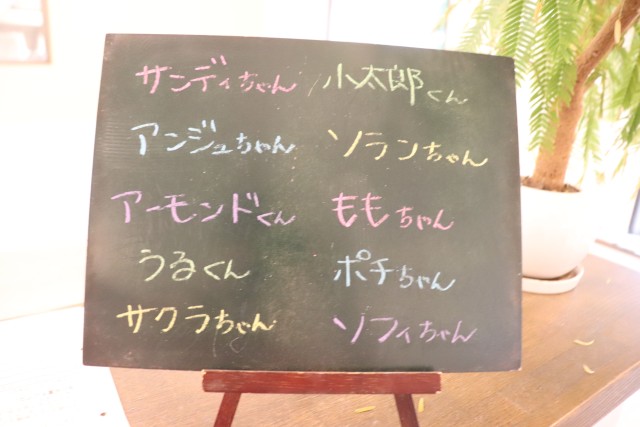 サンディちゃん 小太郎くん
アンジュちゃん ソランちゃん
アーモンドくん ももちゃん
うるくん ポチちゃん
サクラちゃん ソフィちゃん